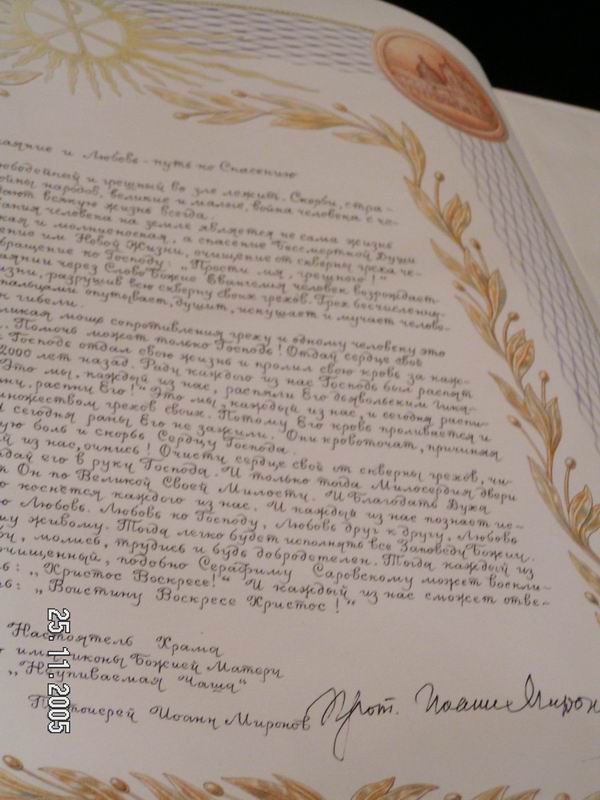 аяние и Любовь - путь ко Спасению
юбодейный и грешный во зле лежит. Скорби, стра-
ойны народов, великие и малые, война человека с че-
ают всякую жизнь всегда.
вания человека на земле является не сама жизнь
кая и молниеносная, а спасение Бессмертной Души
ению им Новой Жизни, очищение от скверны греха че-
обращение ко Господу: „Прости мя, грешного!"
аянии через Слово Божие Евангелия человек возрождает
изни, разрушив всю скверну своих грехов. Грех бесчисленну-
пальцами опутывает, душит, искушает и мучает челове-
к гибели.
ликая мощь сопротивления греху и одному человеку это
. Помочь может только Господь! Отдай сердце своё
Господь отдал свою жизнь и пролил свою кровь за каж-
2000 лет назад. Ради каждого из нас Господь был распят
Это мы, каждый из нас, распяли Его дьявольским гика-
ни, распни Его!" Это мы, каждый из нас, и сегодня распи-
множеством грехов своих. Потому Его кровь проливается и
И сегодня раны Его не зажили. Они кровоточат, причиняя
ую боль и скорбь Сердцу Господа.
й из нас, очнись! Очисти сердце своё от скверны грехов, чи-
дай его в руки Господа. И только тогда Милосердия двери
т Он по Великой Своей Милости. И Благодать Духа
о коснётся каждого из нас. И каждый из нас познает ис-
ю Любовь. Любовь ко Господу, Любовь друг к другу, Любовь
му живому. Тогда легко будет исполнять все Заповеди Божии.
би, молись, трудись и будь добродетелен. Тогда каждый из
очищенный, подобно Серафиму Саровскому может воскли-
ь: „Христос Воскресе!" И каждый из нас сможет отве-
ь: „Воистину Воскресе Христос!"
Настоятель Храма
имени иконы Божией Матери
„Неупиваемая Чаша"
Протоиерей Иоанн Миронов
Прот. Иоанн Мирон
25.11.2005